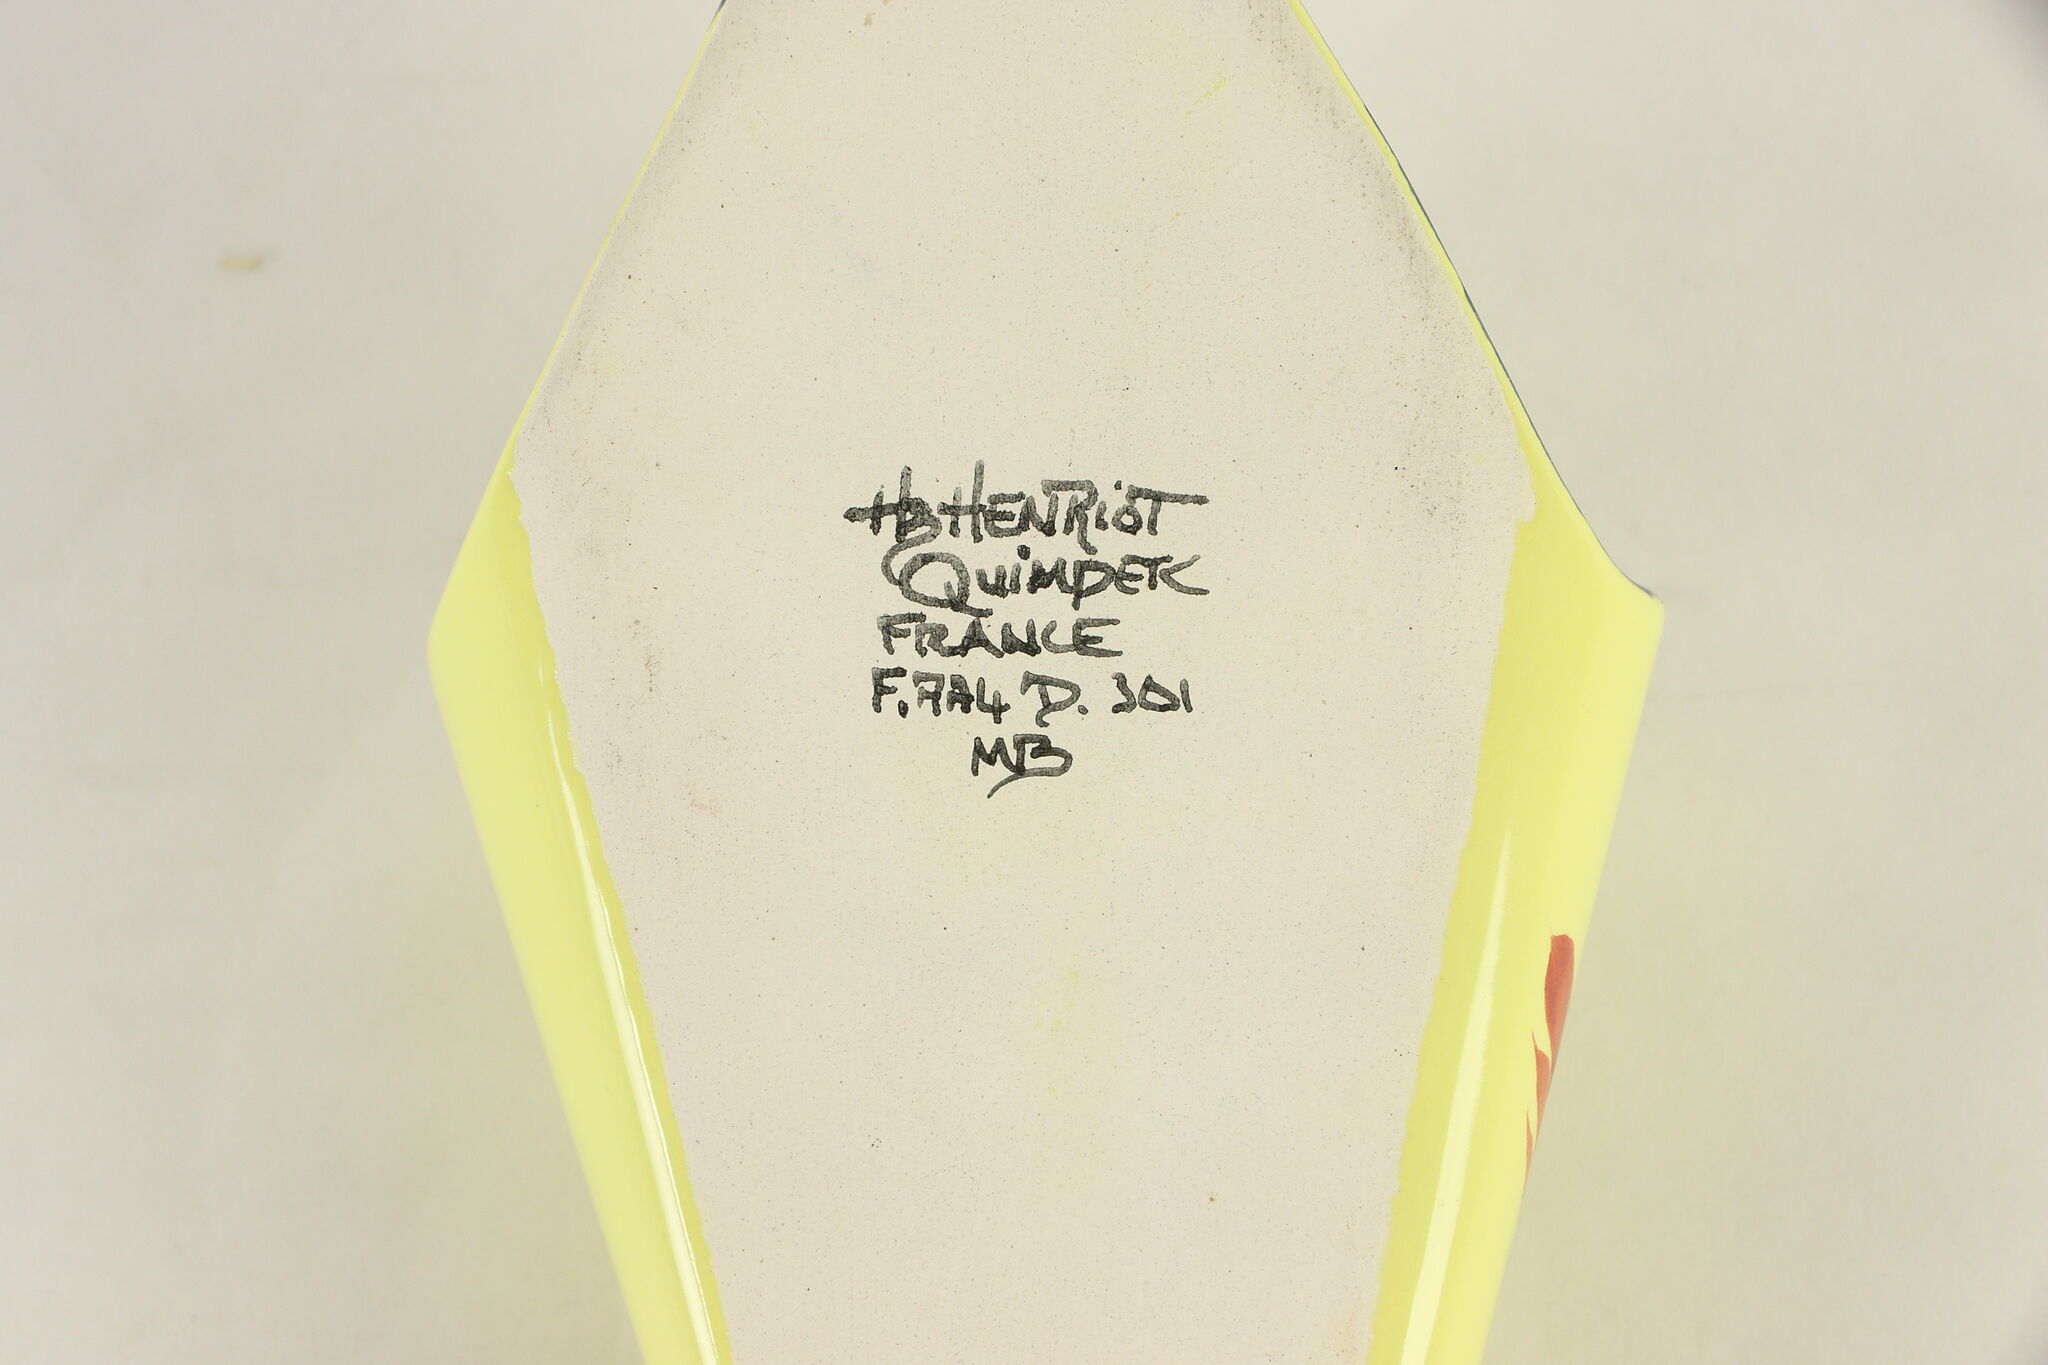 HB HENRiOT
QuimpER
FRANCE
F.774 D. 301
MB